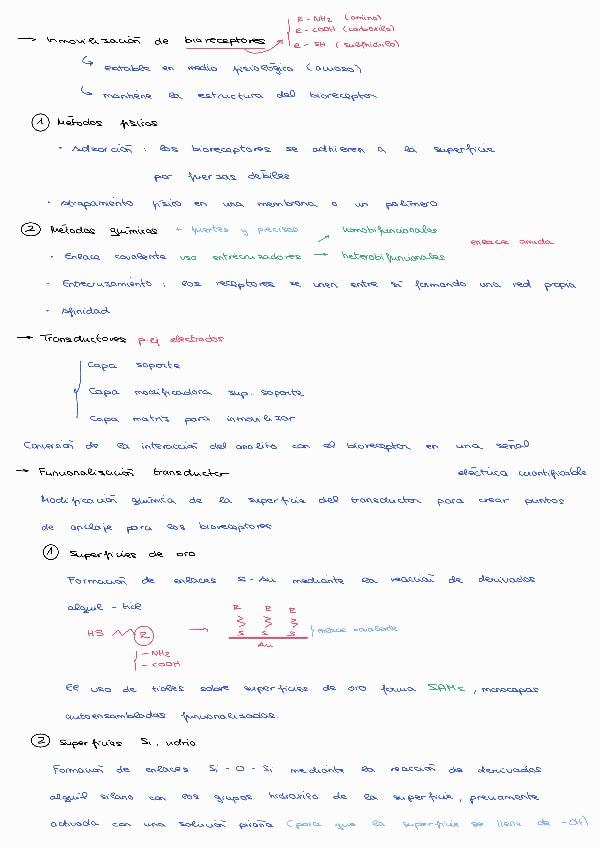 → Inmovilización de bioreceptores
R - NH2 (amino)
R - COOH (carboxilo)
R - SH (sulfhidrilo)
↳ estable en medio fisiológico (acuoso)
↳ mantiene la estructura del bioreceptor
① Métodos físicos
· Adsorción : los bioreceptores se adhieren a la superficie
por fuerzas débiles
· Atrapamiento físico en una membrana o un polímero
② Métodos químicos + fuertes y precisos
· Enlace covalente uso entrecruzadores
↗ homobifuncionales
→ heterobifuncionales
enlace amida
· Entrecruzamiento : los receptores se unen entre sí formando una red propia
· Afinidad
→ Transductores p.ej electrodos
Capa soporte
Capa modificadora sup. soporte
Capa matriz para inmovilizar
Conversión de la interacción del analito con el bioreceptor en una señal
eléctrica cuantificable
→ Funcionalización transductor
Modificación química de la superficie del transductor para crear puntos
de anclaje para los bioreceptores
① Superficies de oro
Formación de enlaces S-Au mediante la reacción de derivados
alquil - tiol
HS R →
- NH2
- COOH
R R R
S S S
Au
enlace covalente
El uso de tioles sobre superficies de oro forma SAMs, monocapas
autoensambladas funcionalizadas.
② Superficies Si, vidrio
Formación de enlaces Si - O - Si mediante la reacción de derivados
alquil silano con los grupos hidroxilo de la superficie, previamente
activada con una solución piraña (para que la superficie se llene de -OH)